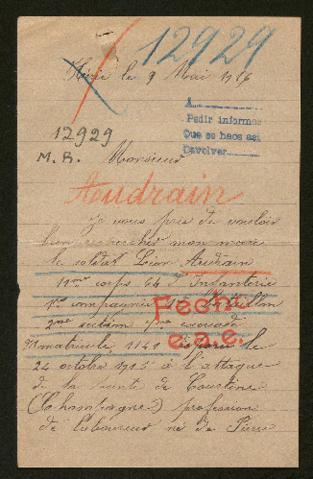 12929
le 9 Mai 1916
A
Pedir informes
Que se haga así
Devolver
12929
M. R. Monsieur
Audrain
Je vous prie de vouloir
bien rechercher mon mari
le soldat Léon Audrain
11me corps 64 d'Infanterie
1re compagnie bataillon
2me section escouade
Fecha
Mmatricule 1141 le
e.a.e.
24 octobre 1915 à l'attaque
de la de
(Champagne) profession
de laboureur né de Pierre